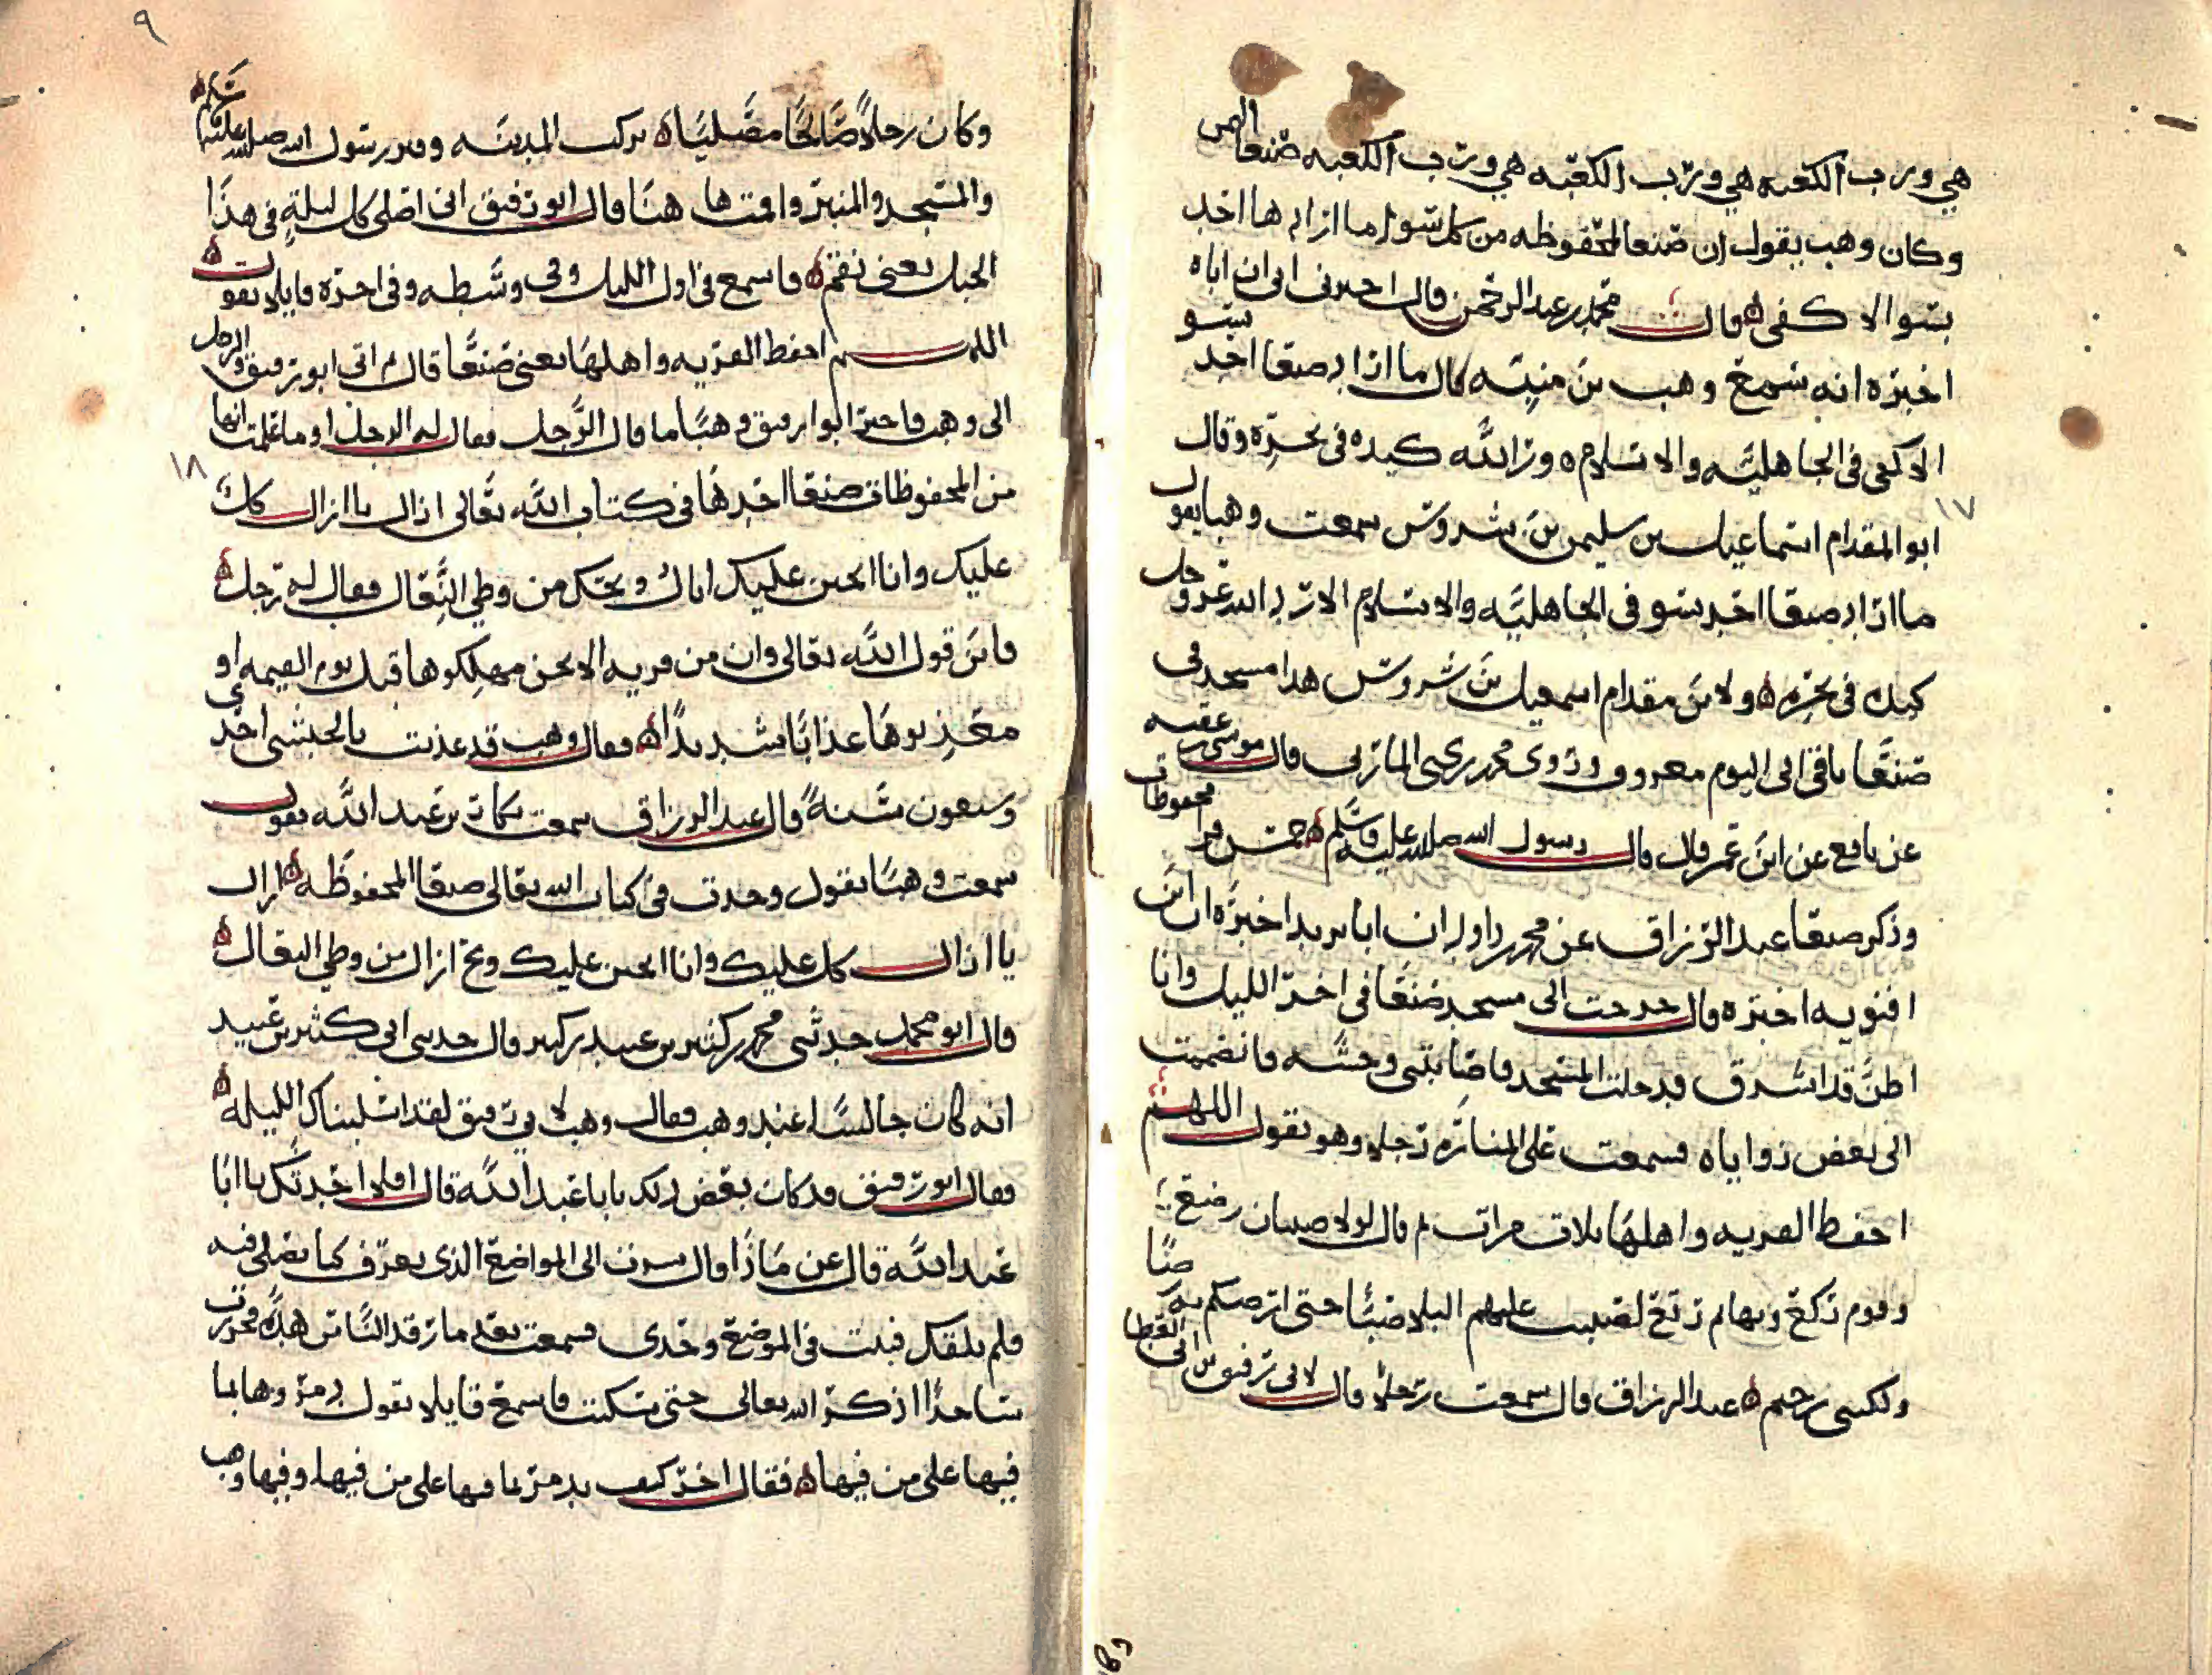 هي ورب الكعبه هي ورب الكعبه هي ورب الكعبه صنعا ارض
وكان وهب يقول ان صنعا المحفوظه من كل سو ما ارادها احد
بسو الا كفي قال محمد بن عبد الرحمن قال اخبرني ابي ان اباه
اخبره انه سمع وهب بن منبه قال ما اراد صنعا احد بسو
الا كفي في الجاهليه والاسلام ورد الله كيده في نحره وقال
ابو المقدام اسماعيل بن سليمن بن شروس سمعت وهبا يقول
١٧
ما اراد صنعا احد بسو في الجاهليه والاسلام الا رد الله عز وجل
كيده في نحره ولابن مقدام اسمعيل بن شروس هذا مسجد في
صنعا باقي الى اليوم معروف وروى محمد بن يحيى الماربي قال موسى بن عقبه
عن نافع عن ابن عمر قال قال رسول الله صلى الله عليه وسلم خمس قر محفوظات
وذكر صنعا عبد الرزاق عن محمد بن داود ان ابا يزيد اخبره ان ابن
افنويه اخبره قال خرجت الى مسجد صنعا في اخر الليل وانا
اظن قد اشرق فدخلت المسجد فاصابتني وحشه فانضممت
الى بعض زواياه فسمعت على المناره رجلا وهو يقول اللهم
احفظ القريه واهلها ثلاث مرات ثم قال لولا صبيان رضع
وقوم ركع وبهائم رتع لصببت عليهم البلا صبا حتى ارصكم به رصا
ولكني رحيم عبد الرزاق قال سمعت رجلا قال لابي رفيق من الى القرظ
٩
وكان رجلا صالحا مصليا تركت المدينه وقبر رسول الله صلى الله عليه وسلم
والمسجد والمنبر واقمت ها هنا قال ابو رفيق اني اصلي كل ليلة في هذا
الجبل يعني نقم فاسمع في اول الليل وفي وسطه وفي اخره قايلا يقول
اللهم احفظ القريه واهلها يعني صنعا قال ثم اتى ابو رفيق والرجل
الى وهب فاخبر ابوا رفيق وهبا ما قال الرجل فقال له الرجل او ما علمت انها
من المحفوظات صنعا اجدها في كتاب الله تعالى ازال يا ازال كل
١٨
عليك وانا اتحنن عليك اياك ويحك من وطي النعال فقال له رجل
فاين قول الله تعالى وان من قريه الا نحن مهلكوها قبل يوم القيمه او
معذبوها عذابا شديدا فقال وهب قد عذبت بالحبشي احدى
وسبعون سنة قال عبد الرزاق سمعت بكار بن عبد الله يقول
سمعت وهبا يقول وجدت في كتاب الله تعالى صنعا المحفوظه ازال
يا ازال كل عليك وانا اتحنن عليك ويح ازال من وطي النعال
قال ابو محمد حدثني محمد بن كثير بن عبيد بن كثير قال حدثني ابي كثير بن عبيد
انه كان جالسا عند وهب فقال وهب لابي رفيق لقد استبيناك الليله
فقال ابو رفيق قد كان بعض ذلك يابا عبد الله قال افلا احدثك يا ابا
عبد الله قال عن ماذا قال سرت الى المواضع الذي يعرف كنا نصلي فيه
فلم نلقك فبت في الموضع وحدي فسمعت بعد ما رقد الناس هده فخررت
ساجدا اذكر الله تعالى حتى سكنت فاسمع قايلا يقول دمروها بما
فيها على من فيها فقال اخر كيف يدمر بما فيها على من فيها وفيها وهب